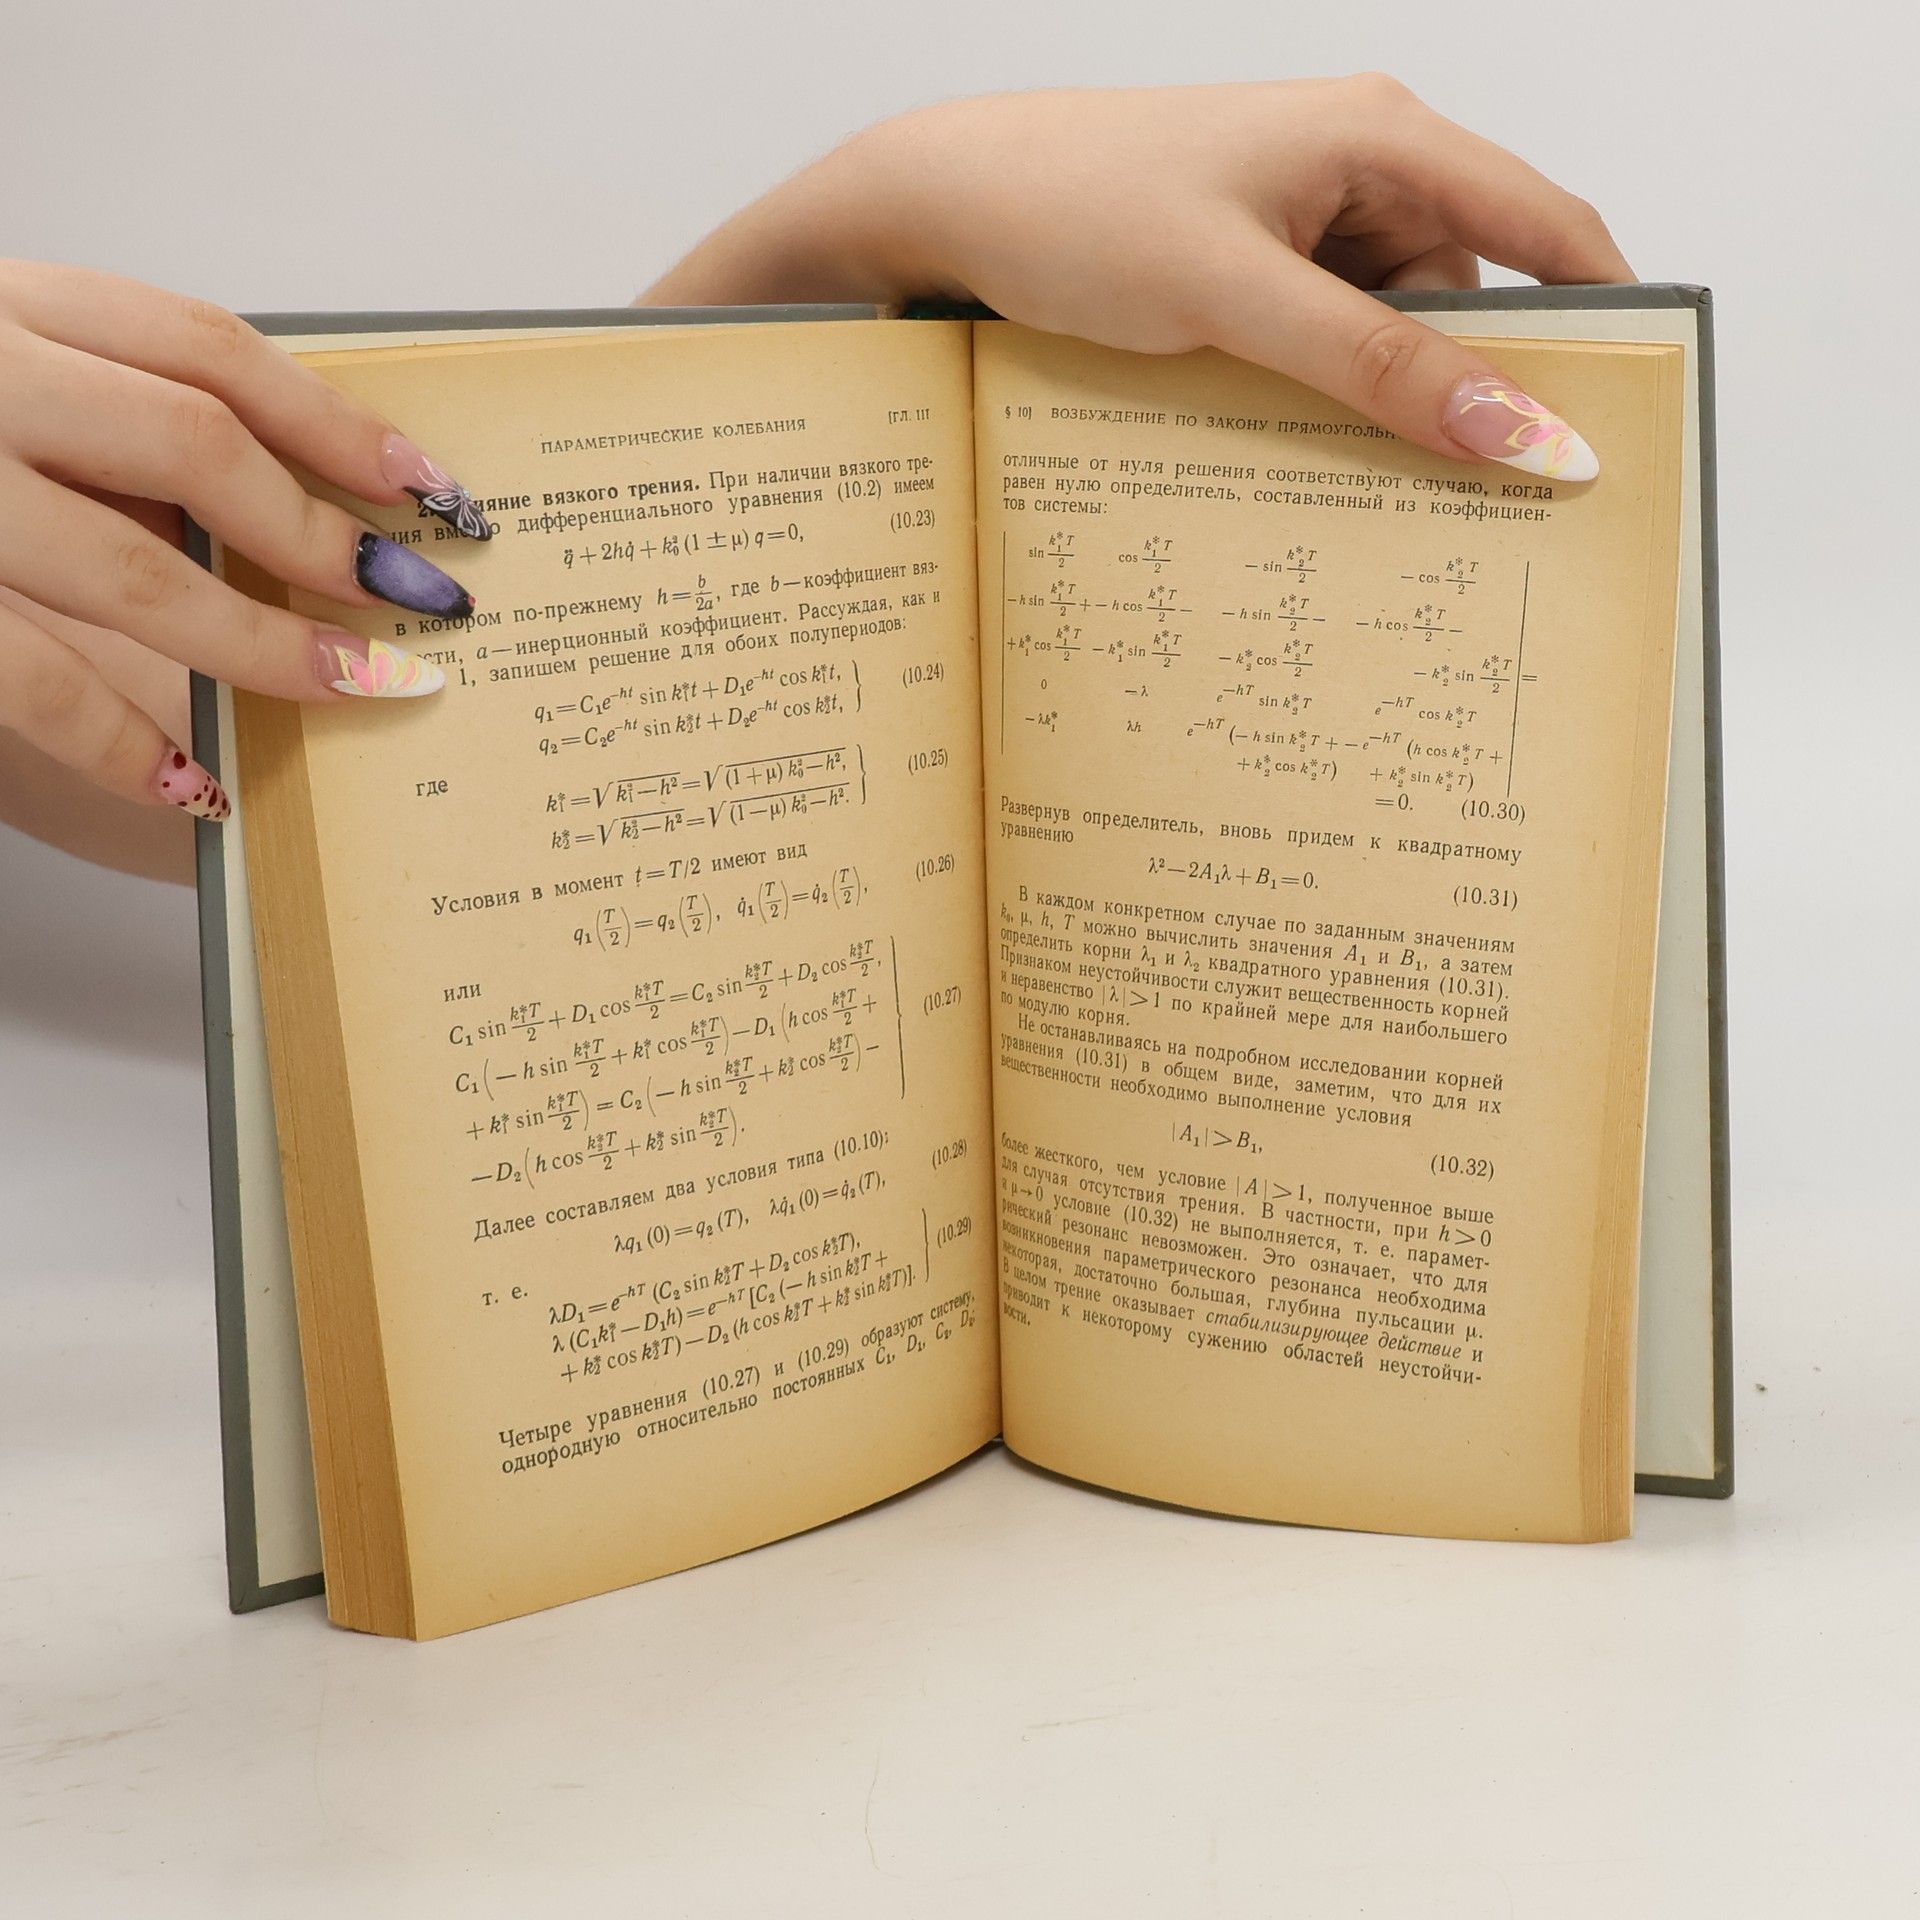 ПАРАМЕТРИЧЕСКИЕ КОЛЕБАНИЯ [ГЛ. III
2. Влияние вязкого трения. При наличии вязкого тре-
ния вместо дифференциального уравнения (10.2) имеем
q̈ + 2hq̇ + k₀² (1 ± μ) q = 0, (10.23)
в котором по-прежнему h = b/2a, где b — коэффициент вяз-
a — инерционный коэффициент. Рассуждая, как и
1, запишем решение для обоих полупериодов:
q₁ = C₁e^{-ht} sin k₁*t + D₁e^{-ht} cos k₁*t,
q₂ = C₂e^{-ht} sin k₂*t + D₂e^{-ht} cos k₂*t, } (10.24)
где
k₁* = √(k₁² — h²) = √((1 + μ) k₀² — h²),
k₂* = √(k₂² — h²) = √((1 — μ) k₀² — h²). } (10.25)
Условия в момент t = T/2 имеют вид
q₁(T/2) = q₂(T/2), q̇₁(T/2) = q̇₂(T/2), (10.26)
или
C₁ sin k₁*T/2 + D₁ cos k₁*T/2 = C₂ sin k₂*T/2 + D₂ cos k₂*T/2,
C₁(— h sin k₁*T/2 + k₁* cos k₁*T/2) — D₁(h cos k₁*T/2 + (10.27)
+ k₁* sin k₁*T/2) = C₂(— h sin k₂*T/2 + k₂* cos k₂*T/2) —
— D₂(h cos k₂*T/2 + k₂* sin k₂*T/2).
Далее составляем два условия типа (10.10):
λq₁(0) = q₂(T), λq̇₁(0) = q̇₂(T), (10.28)
т. е.
λD₁ = e^{-hT} (C₂ sin k₂*T + D₂ cos k₂*T),
λ (C₁k₁* — D₁h) = e^{-hT} [C₂ (— h sin k₂*T + (10.29)
+ k₂* cos k₂*T) — D₂ (h cos k₂*T + k₂* sin k₂*T)].
Четыре уравнения (10.27) и (10.29) образуют систему,
однородную относительно постоянных C₁, D₁, C₂, D₂;
§ 10] ВОЗБУЖДЕНИЕ ПО ЗАКОНУ
отличные от нуля решения соответствуют случаю, когда
равен нулю определитель, составленный из коэффициен-
тов системы:
sin k₁*T/2 cos k₁*T/2 — sin k₂*T/2 — cos k₂*T/2
— h sin k₁*T/2 + — h cos k₁*T/2 — — h sin k₂*T/2 — — h cos k₂*T/2 —
+ k₁* cos k₁*T/2 — k₁* sin k₁*T/2 — k₂* cos k₂*T/2 — k₂* sin k₂*T/2 =
0 — λ e^{-hT} sin k₂*T e^{-hT} cos k₂*T
— λk₁* λh e^{-hT} (— h sin k₂*T + — e^{-hT} (h cos k₂*T +
+ k₂* cos k₂*T) + k₂* sin k₂*T)
= 0. (10.30)
Развернув определитель, вновь придем к квадратному
уравнению
λ² — 2A₁λ + B₁ = 0. (10.31)
В каждом конкретном случае по заданным значениям
k₀, μ, h, T можно вычислить значения A₁ и B₁, а затем
определить корни λ₁ и λ₂ квадратного уравнения (10.31).
Признаком неустойчивости служит вещественность корней
и неравенство |λ| > 1 по крайней мере для наибольшего
по модулю корня.
Не останавливаясь на подробном исследовании корней
уравнения (10.31) в общем виде, заметим, что для их
вещественности необходимо выполнение условия
|A₁| > B₁, (10.32)
более жесткого, чем условие |A| > 1, полученное выше
для случая отсутствия трения. В частности, при h > 0
и μ → 0 условие (10.32) не выполняется, т. е. парамет-
рический резонанс невозможен. Это означает, что для
возникновения параметрического резонанса необходима
некоторая, достаточно большая, глубина пульсации μ.
В целом трение оказывает стабилизирующее действие и
приводит к некоторому сужению областей неустойчи-
вости.